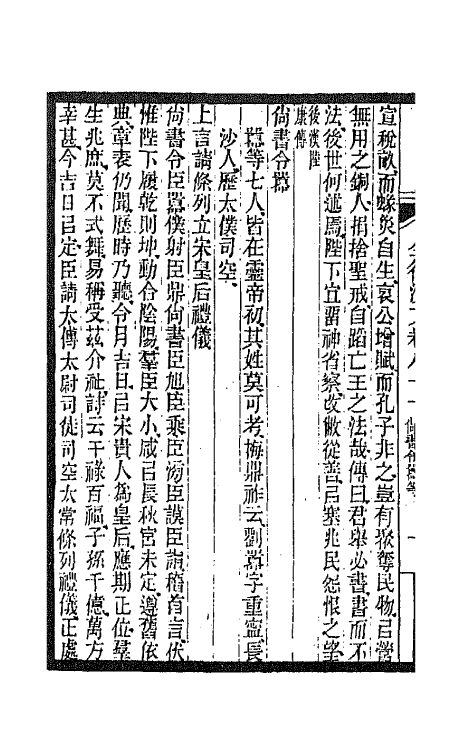 宣稅畝而蝝災自生哀公增賦而孔子非之豈有聚奪民物㠯營
無用之銅人捐捨聖戒自蹈亡王之法哉傳曰君舉必書書而不
法後世何述焉陛下宜畱神省察改敝從善㠯塞兆民怨恨之望
後漢陸
康傳
尚書令嚻
嚻等七人皆在靈帝初其姓莫可考梅鼎祚云劉嚻字重寧長
沙人歷太僕司空
上言請條列立宋皇后禮儀
尚書令臣嚻僕射臣鼎尚書臣旭臣乘臣滂臣謨臣詣稽首言伏
惟陛下履乾則坤動合陰陽羣臣大小咸㠯長秋宮未定遵舊依
典章表仍聞歷時乃聽令月吉日㠯宋貴人爲皇后應期正位羣
生兆庶莫不式舞易稱受茲介祉詩云干祿百福子孫千億萬方
幸甚今吉日㠯定臣請太傅太尉司徒司空太常條列禮儀正處
全後漢文卷八十一 尚書令嚻等 一